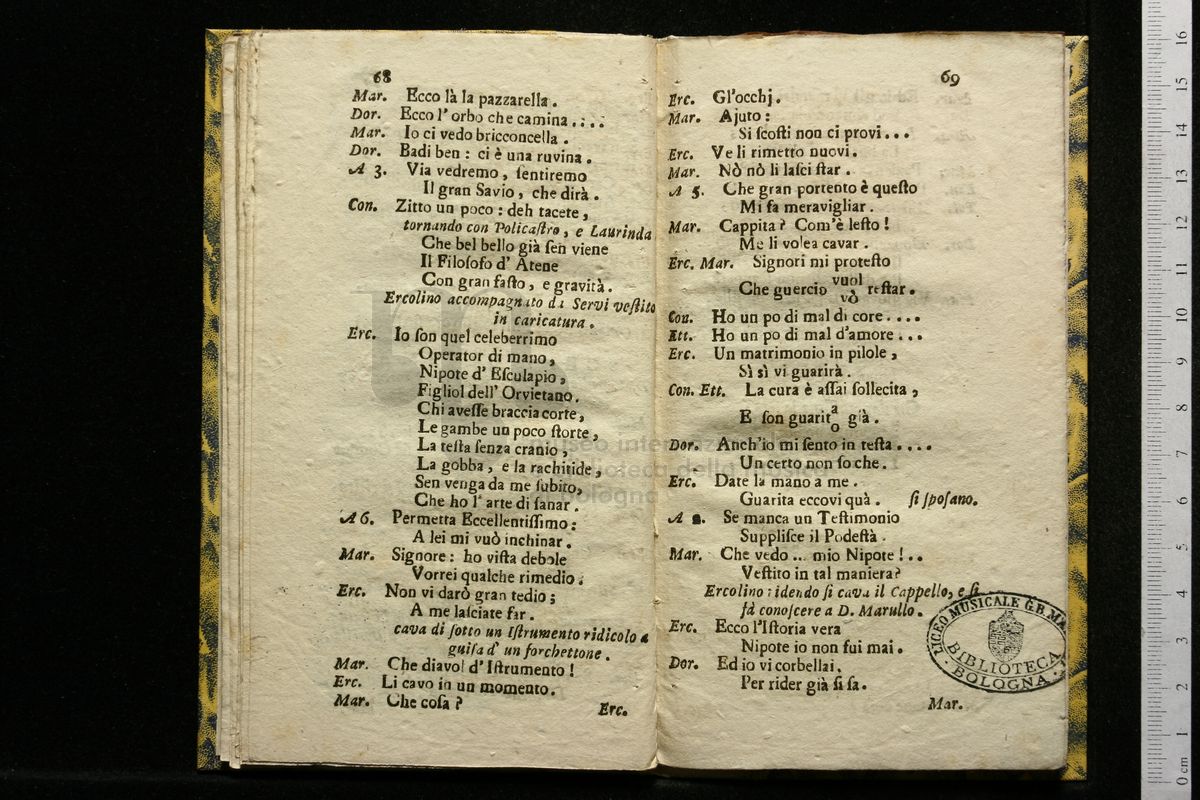 68
Mar. Ecco là la pazzarella.
Dor. Ecco l'orbo che camina....
Mar. Io ci vedo bricconcella.
Dor. Badi ben: ci è una ruvina.
A 3. Via vedremo, ſentiremo
Il gran Savio, che dirà.
Con. Zitto un poco: deh tacete,
tornando con Policaſtro, e Laurinda
Che bel bello già ſen viene
Il Filoſofo d'Atene
Con gran faſto, e gravità.
Ercolino accompagnato di Servi veſtito
in caricatura.
Erc. Io ſon quel celeberrimo
Operator di mano,
Nipote d'Eſculapio,
Figliol dell'Orvietano.
Chi aveſſe braccia corte,
Le gambe un poco ſtorte,
La teſta ſenza cranio,
La gobba, e la rachitide,
Sen venga da me ſubito,
Che ho l'arte di ſanar.
A 6. Permetta Eccellentiſſimo:
A lei mi vuò inchinar.
Mar. Signore: ho viſta debole
Vorrei qualche rimedio.
Erc. Non vi darò gran tedio;
A me laſciate far.
cava di ſotto un Iſtrumento ridicolo a
guiſa d'un forchettone.
Mar. Che diavol d'Iſtrumento!
Erc. Li cavo in un momento.
Mar. Che coſa?
Erc.
69
Erc. Gl'occhj.
Mar. Ajuto:
Si ſcoſti non ci provi...
Erc. Ve li rimetto nuovi.
Mar. Nò nò li laſci ſtar.
A 5. Che gran portento è queſto
Mi fa meravigliar.
Mar. Cappita? Com'è leſto!
Me li volea cavar.
Erc. Mar. Signori mi proteſto
Che guercio vuol reſtar.
vò
Con. Ho un po di mal di core....
Ett. Ho un po di mal d'amore...
Erc. Un matrimonio in pilole,
Sì sì vi guarirà.
Con. Ett. La cura è aſſai ſollecita,
E ſon guarita già.
o
Dor. Anch'io mi ſento in teſta....
Un certo non ſo che.
Erc. Date la mano a me.
Guarita eccovi quà. ſi ſpoſano.
A 2. Se manca un Teſtimonio
Suppliſce il Podeſtà.
Mar. Che vedo... mio Nipote!..
Veſtito in tal maniera?
Ercolino ridendo ſi cava il Cappello, e ſi
fà conoſcere a D. Marullo.
Erc. Ecco l'Iſtoria vera
Nipote io non fui mai.
Dor. Ed io vi corbellai.
Per rider già ſi ſa.
Mar.
LICEO MUSICALE G.B. MA
BIBLIOTECA
BOLOGNA
museo internazionale
biblioteca della musica
bologna
0 cm 1 2 3 4 5 6 7 8 9 10 11 12 13 14 15 16